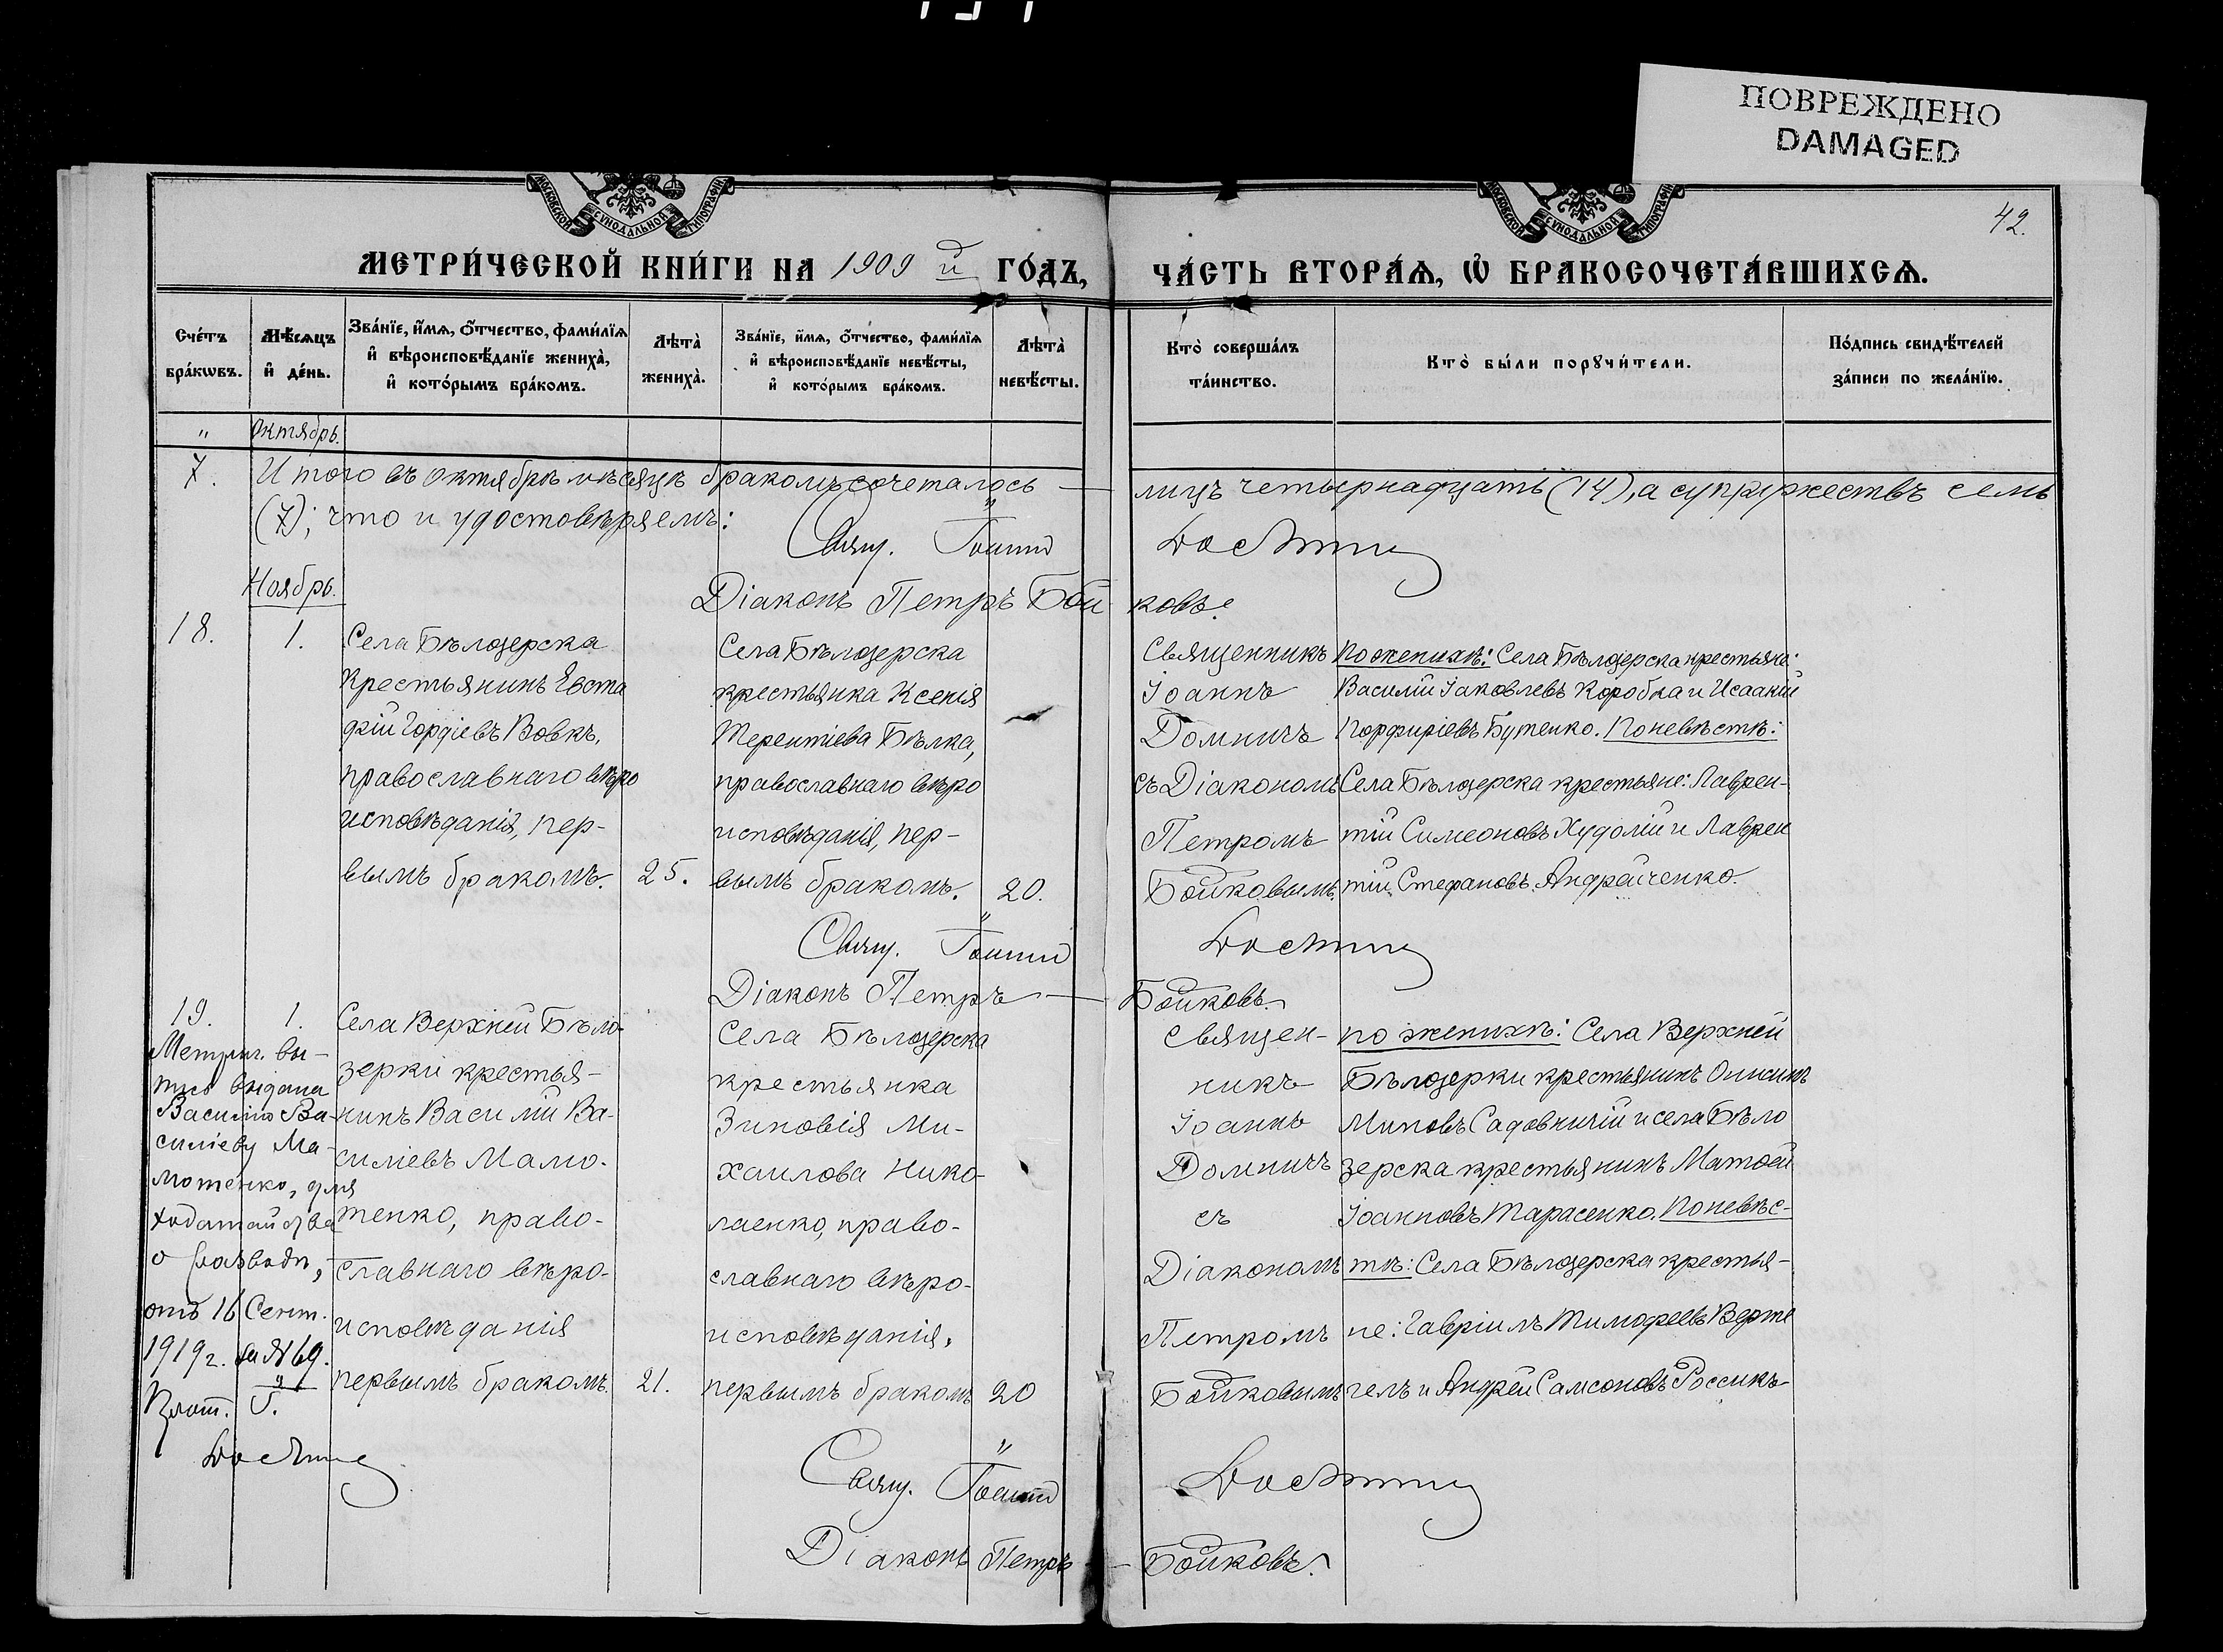 ПОВРЕЖДЕНО
DAMAGED
МОСКОВСКОЙ СУНОДАЛЬНОЙ ТИПОГРАФІИ
МОСКОВСКОЙ СУНОДАЛЬНОЙ ТИПОГРАФІИ
42.
МЕТРИ́ЧЕСКОЙ КНИ́ГИ НА 1909 й ГО́ДЪ, ЧА́СТЬ ВТОРА́Я, Ѡ҆ БРАКОСОЧЕТА́ВШИХСЯ.
Сче́тъ
бра́кѡвъ.
Мѣ́сяцъ
и҆ де́нь.
Зва́нїе, и҆́мя, ѻ҆́тчество, фами́лїя
и҆ вѣроисповѣ́данїе жениха̀,
и҆ кото́рымъ бра́комъ.
Лѣ́та̀
жениха̀.
Зва́нїе, и҆́мя, ѻ҆́тчество, фами́лїя
и҆ вѣроисповѣ́данїе невѣ́сты,
и҆ кото́рымъ бра́комъ.
Лѣ́та̀
невѣ́сты.
Кто̀ соверша́лъ
та́инство.
Кто̀ бы́ли порꙋчи́тели.
По́дпись свидѣ́телей
за́писи по жела́нїю.
" Октябрь.
7. Итого въ октябрѣ мѣсяцѣ бракомъ сочеталось — лицъ четырнадцать (14), а супружествъ семь
(7); что и удостовѣряемъ:
Свящ. Іоаннъ
Діаконъ Петръ Бойковъ.
Ноябрь.
18. 1.
Села Бѣлозерска
крестьянинъ Евста
фій Гордіевъ Вовкъ,
православнаго вѣро
исповѣданія, пер-
вымъ бракомъ. 25.
Села Бѣлозерска
крестьянка Ксенія
Терентіева Бѣлка,
православнаго вѣро
исповѣданія, пер-
вымъ бракомъ. 20.
Священникъ
Іоаннъ
Домничъ
съ Діакономъ
Петромъ
Бойковымъ.
По женихѣ: Села Бѣлозерска крестьяне:
Василій Іаковлевъ Коробка и Исаакій
Порфиріевъ Бутенко. По невѣстѣ:
Села Бѣлозерска крестьяне: Лаврен-
тій Симеоновъ Худолій и Лаврен
тій Стефановъ Андрейченко.
Свящ. Іоаннъ
Діаконъ Петръ — Бойковъ.
19. 1.
Метрич. вы-
пись выдана
Василію Ва-
силіеву Ма-
мотенко, для
ходатайства
о разводѣ,
отъ 16 Сент.
1919 г. за № 69.
Села Верхней Бѣло-
зерки крестья-
нинъ Василій Ва-
силіевъ Мамо-
тенко, право-
славнаго вѣро-
исповѣданія
первымъ бракомъ. 21.
Села Бѣлозерска
крестьянка
Зиновія Ми-
хаилова Нико-
лаенко, право-
славнаго вѣро-
исповѣданія,
первымъ бракомъ 20
Священ-
никъ
Іоаннъ
Домничъ
съ
Діакономъ
Петромъ
Бойковымъ
по женихѣ: Села Верхней
Бѣлозерки крестьянинъ Онисимъ
Миновъ Садовничій и села Бѣло
зерска крестьянинъ Матөей
Іоанновъ Тарасенко. По невѣс-
тѣ: Села Бѣлозерска крестья-
не: Гавріилъ Тимофеевъ Верте
гелъ и Андрей Самсоновъ Россикъ
Свящ. Іоаннъ
Діаконъ Петръ — Бойковъ.